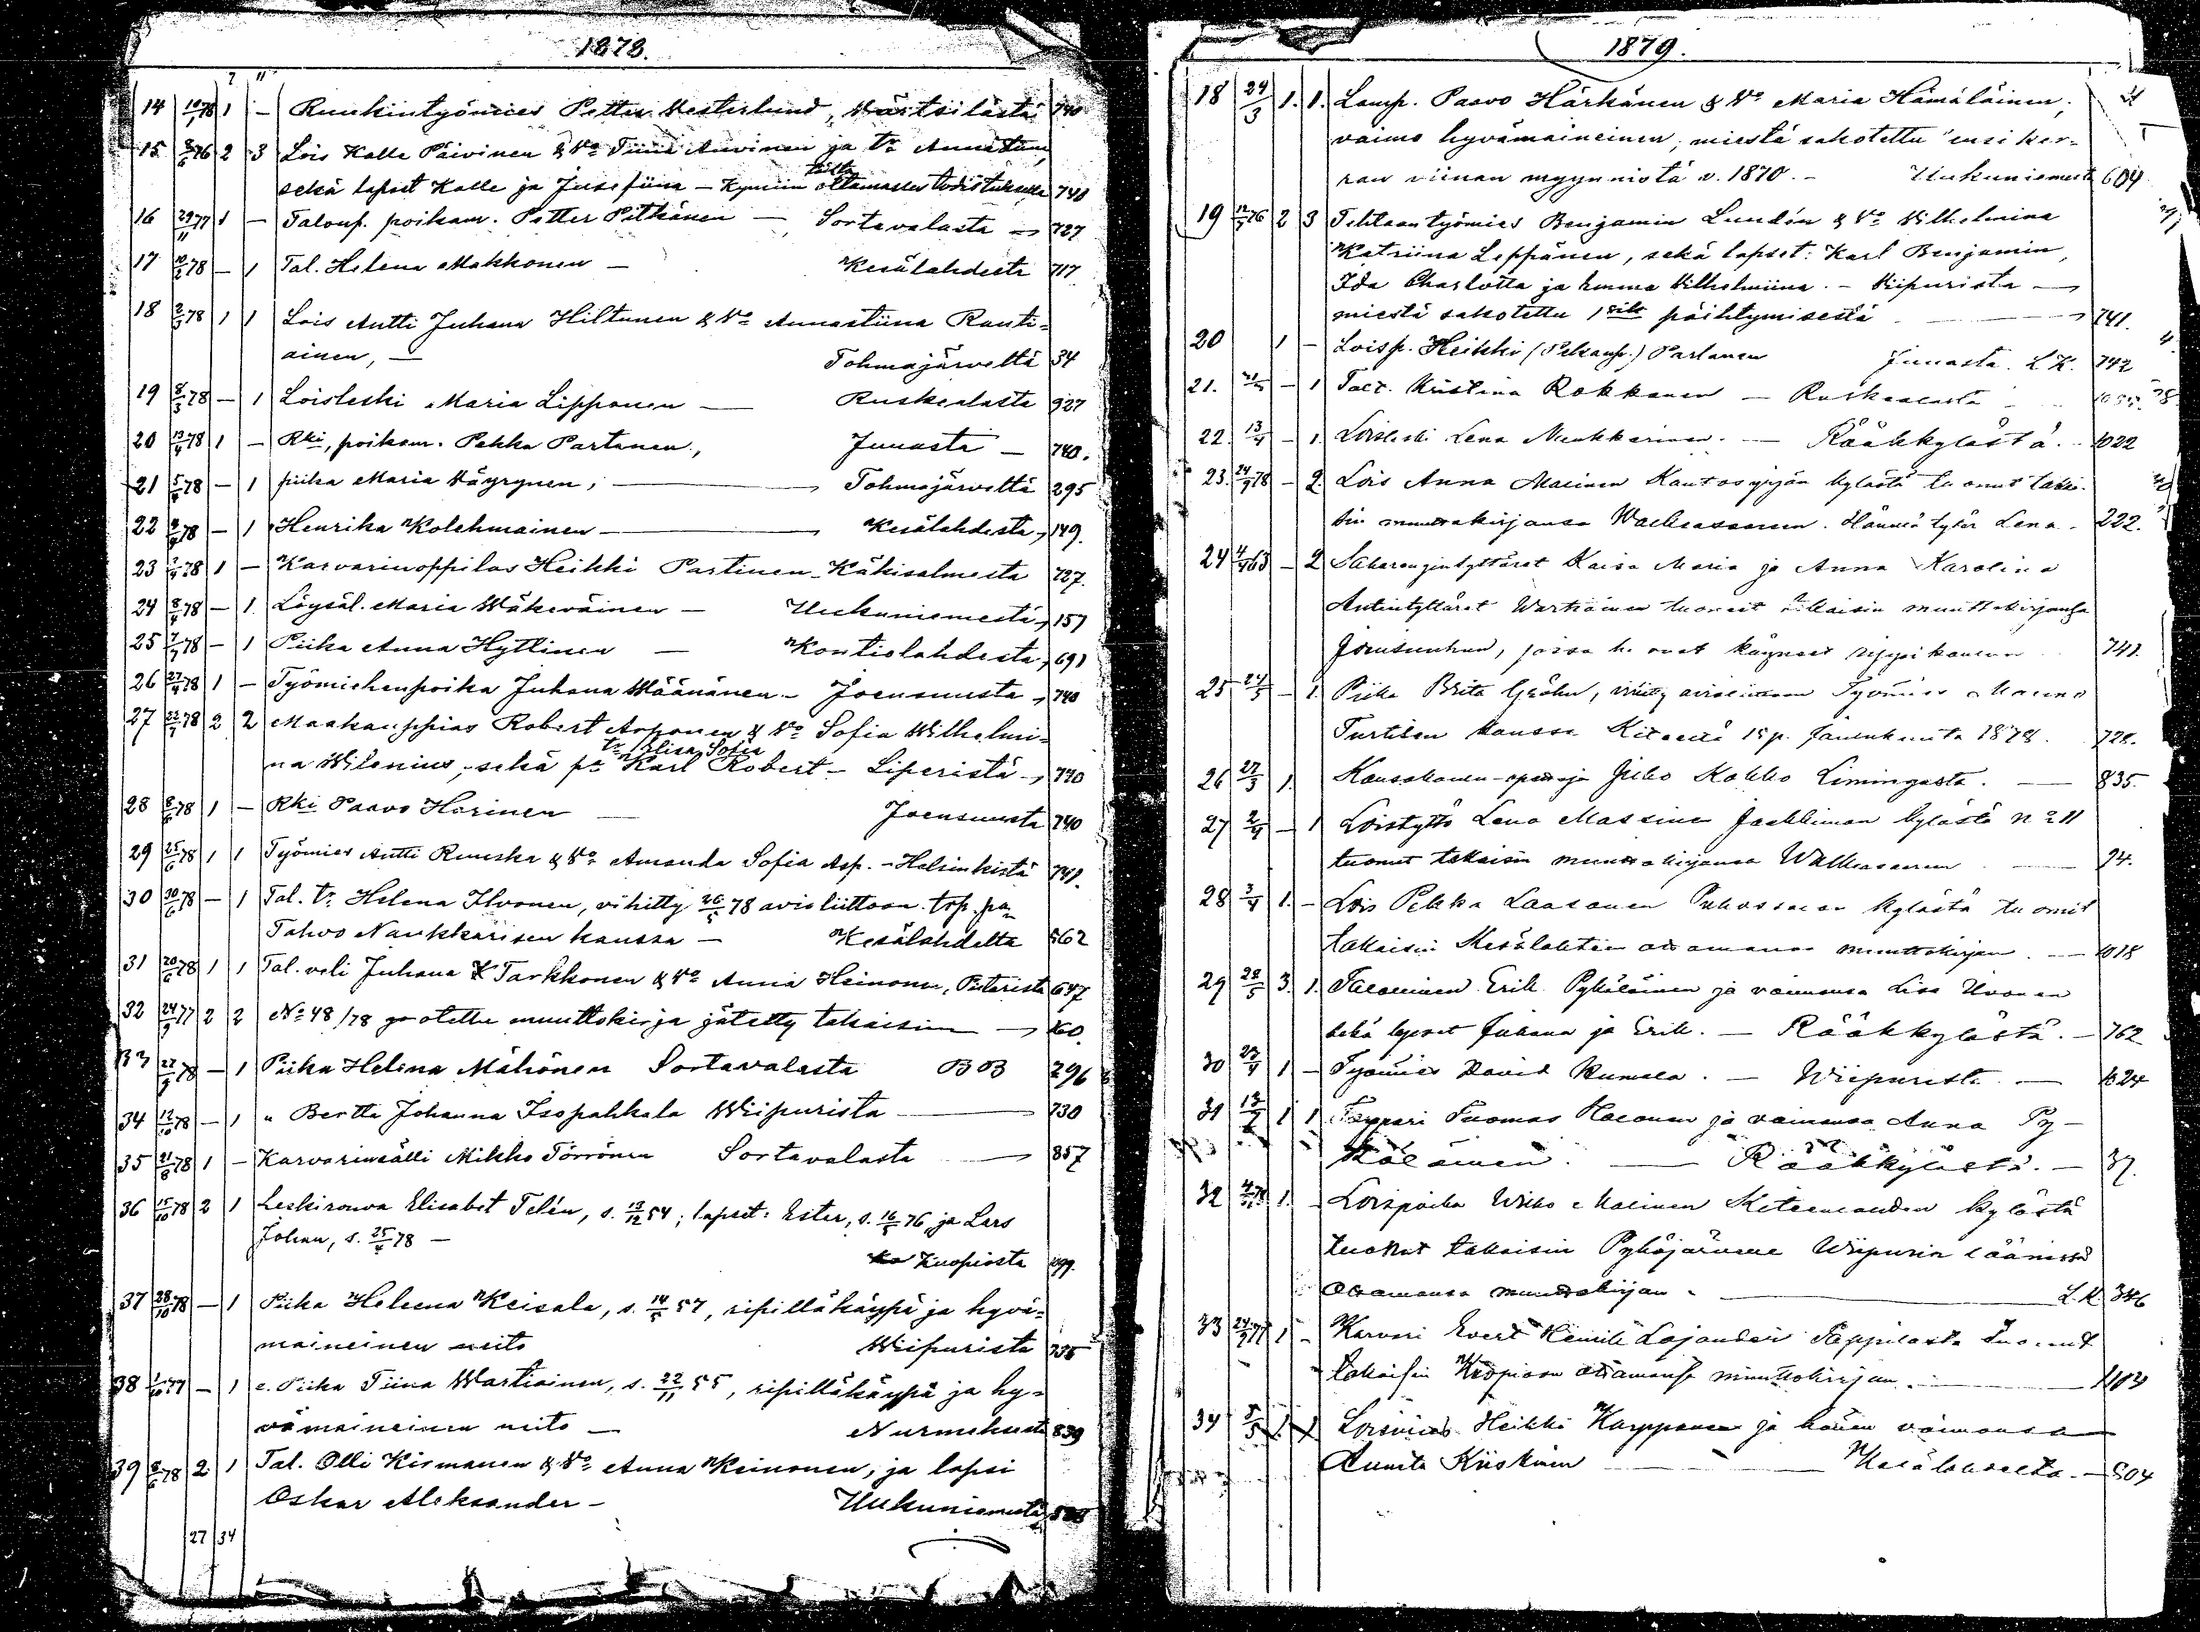 1878.
7 11
14 10/1 78 1 - Ruukintyömies Petter Westerlund, Wärtsilästä 740
15 76 2 3 Lois Kalle Päivinen & Vo Tiina Auvinen ja tr Annastiina,
sekä lapset Kalle ja Josefiina - Kymiin täältä ottamasten todistuksella 740
16 29/11 77 1 - Talonp. poikam. Petter Pitkänen - Sortavalasta - 727
17 10/2 78 - 1 Tal. Helena Makkonen - Kesälahdesta 717.
18 2/3 78 1 1 Lois Antti Juhana Hiltunen & Vo Annastiina Ranti=
ainen, - Tohmajärveltä 34
19 8/3 78 - 1 Loisleski Maria Lipponen - Ruskealasta 927
20 13/4 78 1 - Rki, poikam. Pekka Partanen, Juuasta - 740.
21 5/4 78 - 1 piika Maria Väyrynen, - Tohmajärveltä 295
22 78 - 1 Henrika Kolehmainen - Kesälahdesta, 149.
23 78 1 - Karvarinoppilas Heikki Partinen - Käkisalmesta 727.
24 8/4 78 - 1. Löysäl. Maria Wäkeväinen - Uukuniemestä, 157
25 78 - 1 Piika Anna Hyttinen - Kontiolahdesta, 691
26 27/4 78 1 - Työmiehenpoika Juhana Wäänänen - Joensuusta, 740
27 78 2 2 Maakauppias Robert Arponen & Vo Sofia Wilhelmi=
tr Elisa Sofia
na Wilenius, sekä pa Karl Robert - Liperistä, 740
28 78 1 - Rki Paavo Harinen - Joensuusta 740
29 25/6 78 1 1 Työmies Antti Ruuska & Vo Amanda Sofia Asp. - Helsinkistä 741.
30 30/6 78 - 1 Tal. tr. Helena Ilvonen, vihitty 26/5 78 avioliittoon tsp. pa
Tahvo Naukkarisen kanssa - Kesälahdelta 562
31 20/6 78 1 1 Tal. veli Juhana Tarkkonen & Vo Anna Heinonen, Pietarista 647
32 24/9 77 2 2 No 48/78 otettu muuttokirja jätetty takaisin - 160.
33 27/9 78 - 1 Piika Helena Mähönen Sortavalasta B B 296
34 12/10 78 - 1 " Bertta Johanna Isopahkala Wiipurista - 730
35 21/8 78 1 - Karvarinsälli Mikko Törrönen Sortavalasta - 857
36 15/10 78 2 1 Leskirouva Elisabet Telén, s. 13/12 54; lapset: Ester, s. 16/5 76 ja Lars
Johan, s. 25/4 78 -
Kuopiosta 499.
37 28/10 78 - 1 Piika Heleena Keisala, s. 14/5 57, ripilläkäypä ja hyvä=
maineinen neito Wiipurista 735
38 1/10 77 - 1 e. Piika Tiina Wartiainen, s. 22/11 55, ripilläkäypä ja hy=
vämaineinen neito - Nurmeksesta 839
39 8/6 78 2 1 Tal. Olli Kismanen & Vo Anna Keinonen, ja lapsi
Oskar Aleksander - Uukuniemestä
27 34
1879.
18 24/3 1. 1. Lamp. Paavo Härkänen & Vo Maria Hämäläinen,
vaimo hyvämaineinen, miestä sakotettu ensi ker=
ran viinan myynnistä v. 1870. - Uukuniemestä 604
19 76 2 3 Tehtaantyömies Benjamin Lundén & Vo Wilhelmina
Katriina Leppänen, sekä lapset: Karl Benjamin,
Ida Charlotta ja Emma Wilhelmiina. - Wiipurista -
miestä sakotettu 1 päihtymisestä - 741.
20 1 - Loisp. Heikki (Pekanp.) Partanen Juuasta. L.K. 742
21. - 1 Kristina Rokkanen - Ruskealasta
22. 13/4 - 1. Loisleski Lena Nuukkarinen. - Rääkkylästä. - 1022
23. 24/9 78 - 2 Lois Anna Malinen kylästä tuonut takai-
sin muuttokirjansa Walkeasaareen. Hänen tytär Lena. 222.
24 63 - 2 tyttäret Kaisa Maria ja Anna Karolina
Antintyttäret Wartiainen tuoneet takaisin muuttokirjansa
Joensuuhun, jossa he ovat käyneet rippikoulun 741.
25 24/5 - 1. Piika Brita Gröhn, vihitty avioliittoon Työmies Mauno
Turtisen kanssa Kiteellä 15 p. Joulukuuta 1878. 728.
26 27/3 1. Kansakoulu-opettaja Juho Kokko Limingasta. - 835.
27 2/4 - 1 Loistyttö Lena Massinen Jaakkiman kylästä No 11
tuonut takaisin muuttokirjansa Walkeasaareen - 94.
28 3/4 1. - Lois Pekka Laasanen Puhossalon kylästä tuonut
takaisin Kesälahteen ottamansa muuttokirjan. - 1018
29 28/5 3. 1. Talollinen Erik Pykäläinen ja vaimonsa Lisa Uvonen
sekä lapset Juhana ja Erik. - Rääkkylästä. - 762
30 23/4 1 - Työmies David Kumala. - Wiipurista. - 1024
31 1 1 Torppari Tuomas Halonen ja vaimonsa Anna Py-
käläinen. - Rääkkylästä. - 37.
32 78 1. - Loispoika Malinen kylästä
tuonut takaisin Pyhäjärvelle Wiipurin läänissä
ottamansa muuttokirjan. - L.K. 346
33 24/9 77 1 - Karvari Evert Henrik Lojander Pappilasta tuonut
takaisin Kuopioon ottamansa muuttokirjan. -
34 5/5 Loismies Heikki Karppanen ja hänen vaimonsa
Annita Kiiskinen - Kesälahdelta. - 504